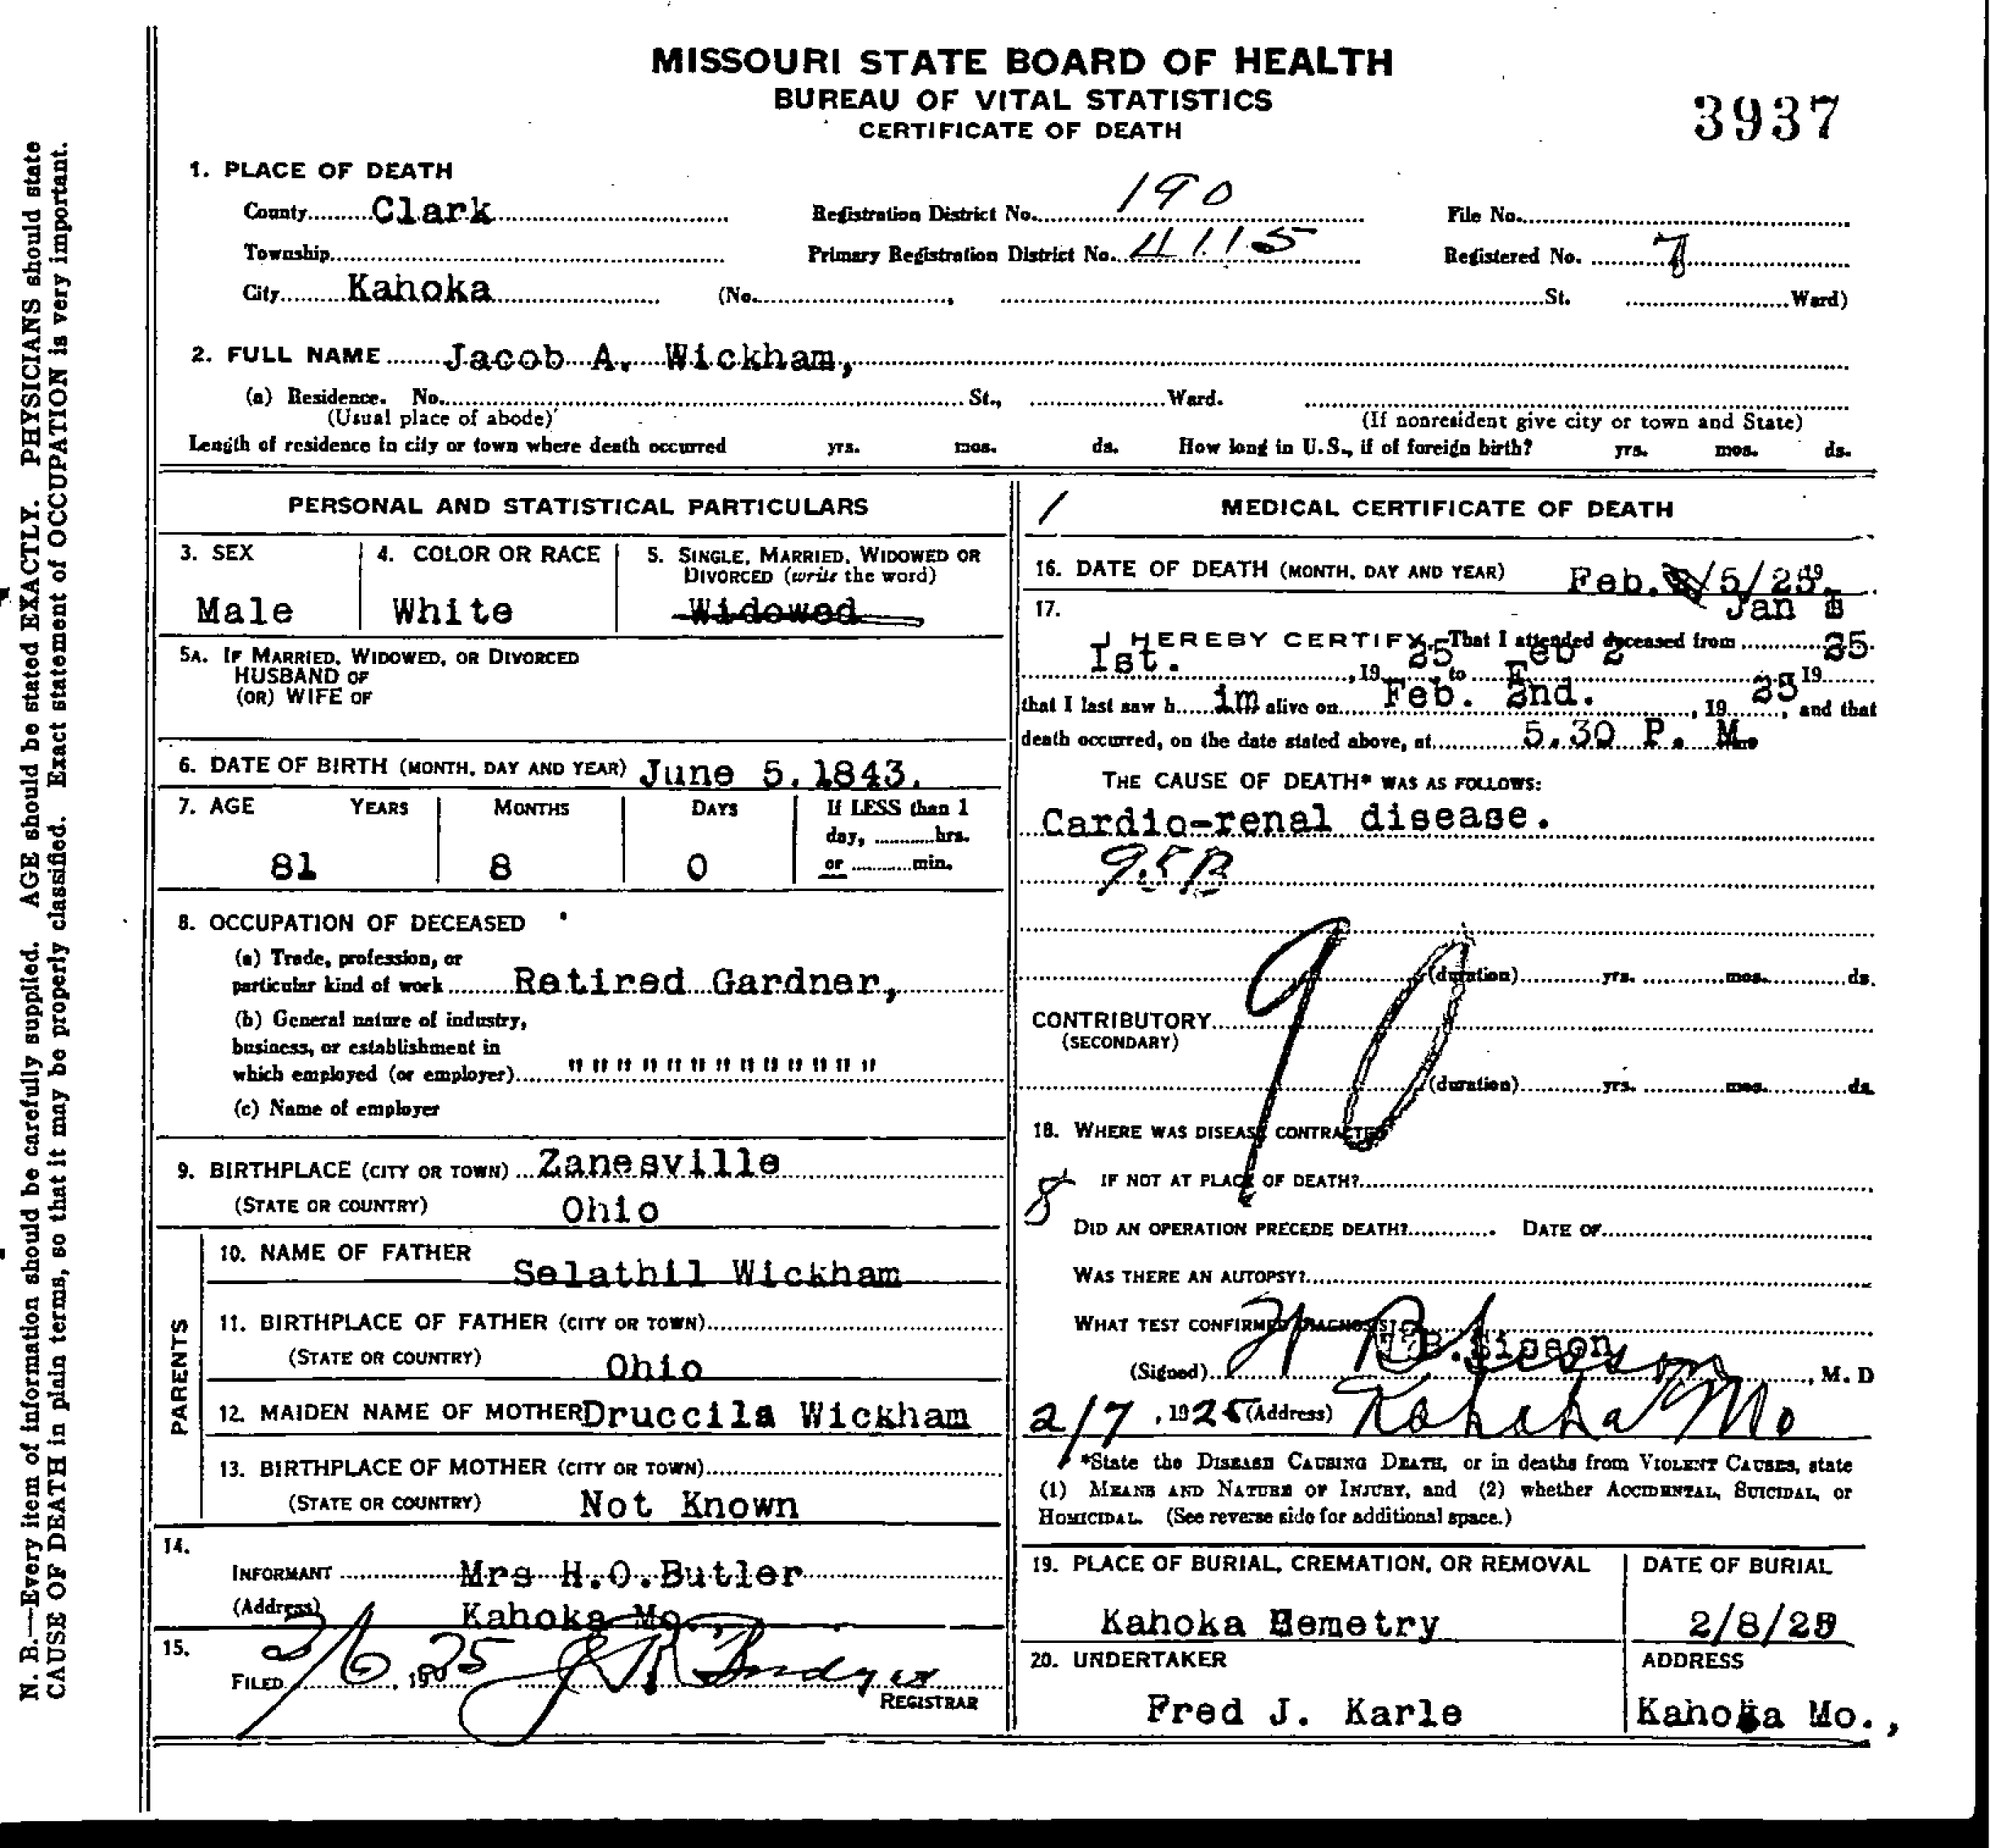 MISSOURI STATE BOARD OF HEALTH
BUREAU OF VITAL STATISTICS
CERTIFICATE OF DEATH
3937
1. PLACE OF DEATH
County Clark Registration District No. 190 File No.
Township Primary Registration District No. 4115 Registered No. 7
City Kahoka (No. , St. Ward)
2. FULL NAME Jacob A. Wickham,
(a) Residence. No. St., Ward.
(Usual place of abode) (If nonresident give city or town and State)
Length of residence in city or town where death occurred yrs. mos. ds. How long in U.S., if of foreign birth? yrs. mos. ds.
PERSONAL AND STATISTICAL PARTICULARS
3. SEX 4. COLOR OR RACE 5. SINGLE, MARRIED, WIDOWED OR
DIVORCED (write the word)
Male White Widowed
5A. IF MARRIED, WIDOWED, OR DIVORCED
HUSBAND OF
(OR) WIFE OF
6. DATE OF BIRTH (MONTH, DAY AND YEAR) June 5, 1843.
7. AGE YEARS MONTHS DAYS If LESS than 1
day, hrs.
81 8 0 or min.
8. OCCUPATION OF DECEASED
(a) Trade, profession, or
particular kind of work Retired Gardner,
(b) General nature of industry,
business, or establishment in
which employed (or employer) " " " " " " " " " " " " "
(c) Name of employer
9. BIRTHPLACE (CITY OR TOWN) Zanesville
(STATE OR COUNTRY) Ohio
PARENTS
10. NAME OF FATHER Selathil Wickham
11. BIRTHPLACE OF FATHER (CITY OR TOWN)
(STATE OR COUNTRY) Ohio
12. MAIDEN NAME OF MOTHER Druccila Wickham
13. BIRTHPLACE OF MOTHER (CITY OR TOWN)
(STATE OR COUNTRY) Not Known
14.
INFORMANT Mrs H.O.Butler
(Address) Kahoka Mo.,
15.
FILED 2/6, 1925
REGISTRAR
MEDICAL CERTIFICATE OF DEATH
16. DATE OF DEATH (MONTH, DAY AND YEAR) Feb. /5/25. 19
17. Jan
I HEREBY CERTIFY, That I attended deceased from 25
Ist. , 19 25 to Feb 2 19
that I last saw h im alive on Feb. 2nd. , 19 25, and that
death occurred, on the date stated above, at 5.30 P. M.
THE CAUSE OF DEATH* WAS AS FOLLOWS:
Cardio-renal disease.
95B
90
(duration) yrs. mos. ds.
CONTRIBUTORY
(SECONDARY)
(duration) yrs. mos. ds.
18. WHERE WAS DISEASE CONTRACTED
8 IF NOT AT PLACE OF DEATH?
DID AN OPERATION PRECEDE DEATH? DATE OF
WAS THERE AN AUTOPSY?
WHAT TEST CONFIRMED DIAGNOSIS?
(Signed) B. Sisson, M. D
2/7, 1925 (Address) Kahoka Mo
*State the DISEASE CAUSING DEATH, or in deaths from VIOLENT CAUSES, state
(1) MEANS AND NATURE OF INJURY, and (2) whether ACCIDENTAL, SUICIDAL, or
HOMICIDAL. (See reverse side for additional space.)
19. PLACE OF BURIAL, CREMATION, OR REMOVAL DATE OF BURIAL
Kahoka Cemetry 2/8/25
20. UNDERTAKER ADDRESS
Fred J. Karle Kahoka Mo.,
N. B.—Every item of information should be carefully supplied. AGE should be stated EXACTLY. PHYSICIANS should state
CAUSE OF DEATH in plain terms, so that it may be properly classified. Exact statement of OCCUPATION is very important.